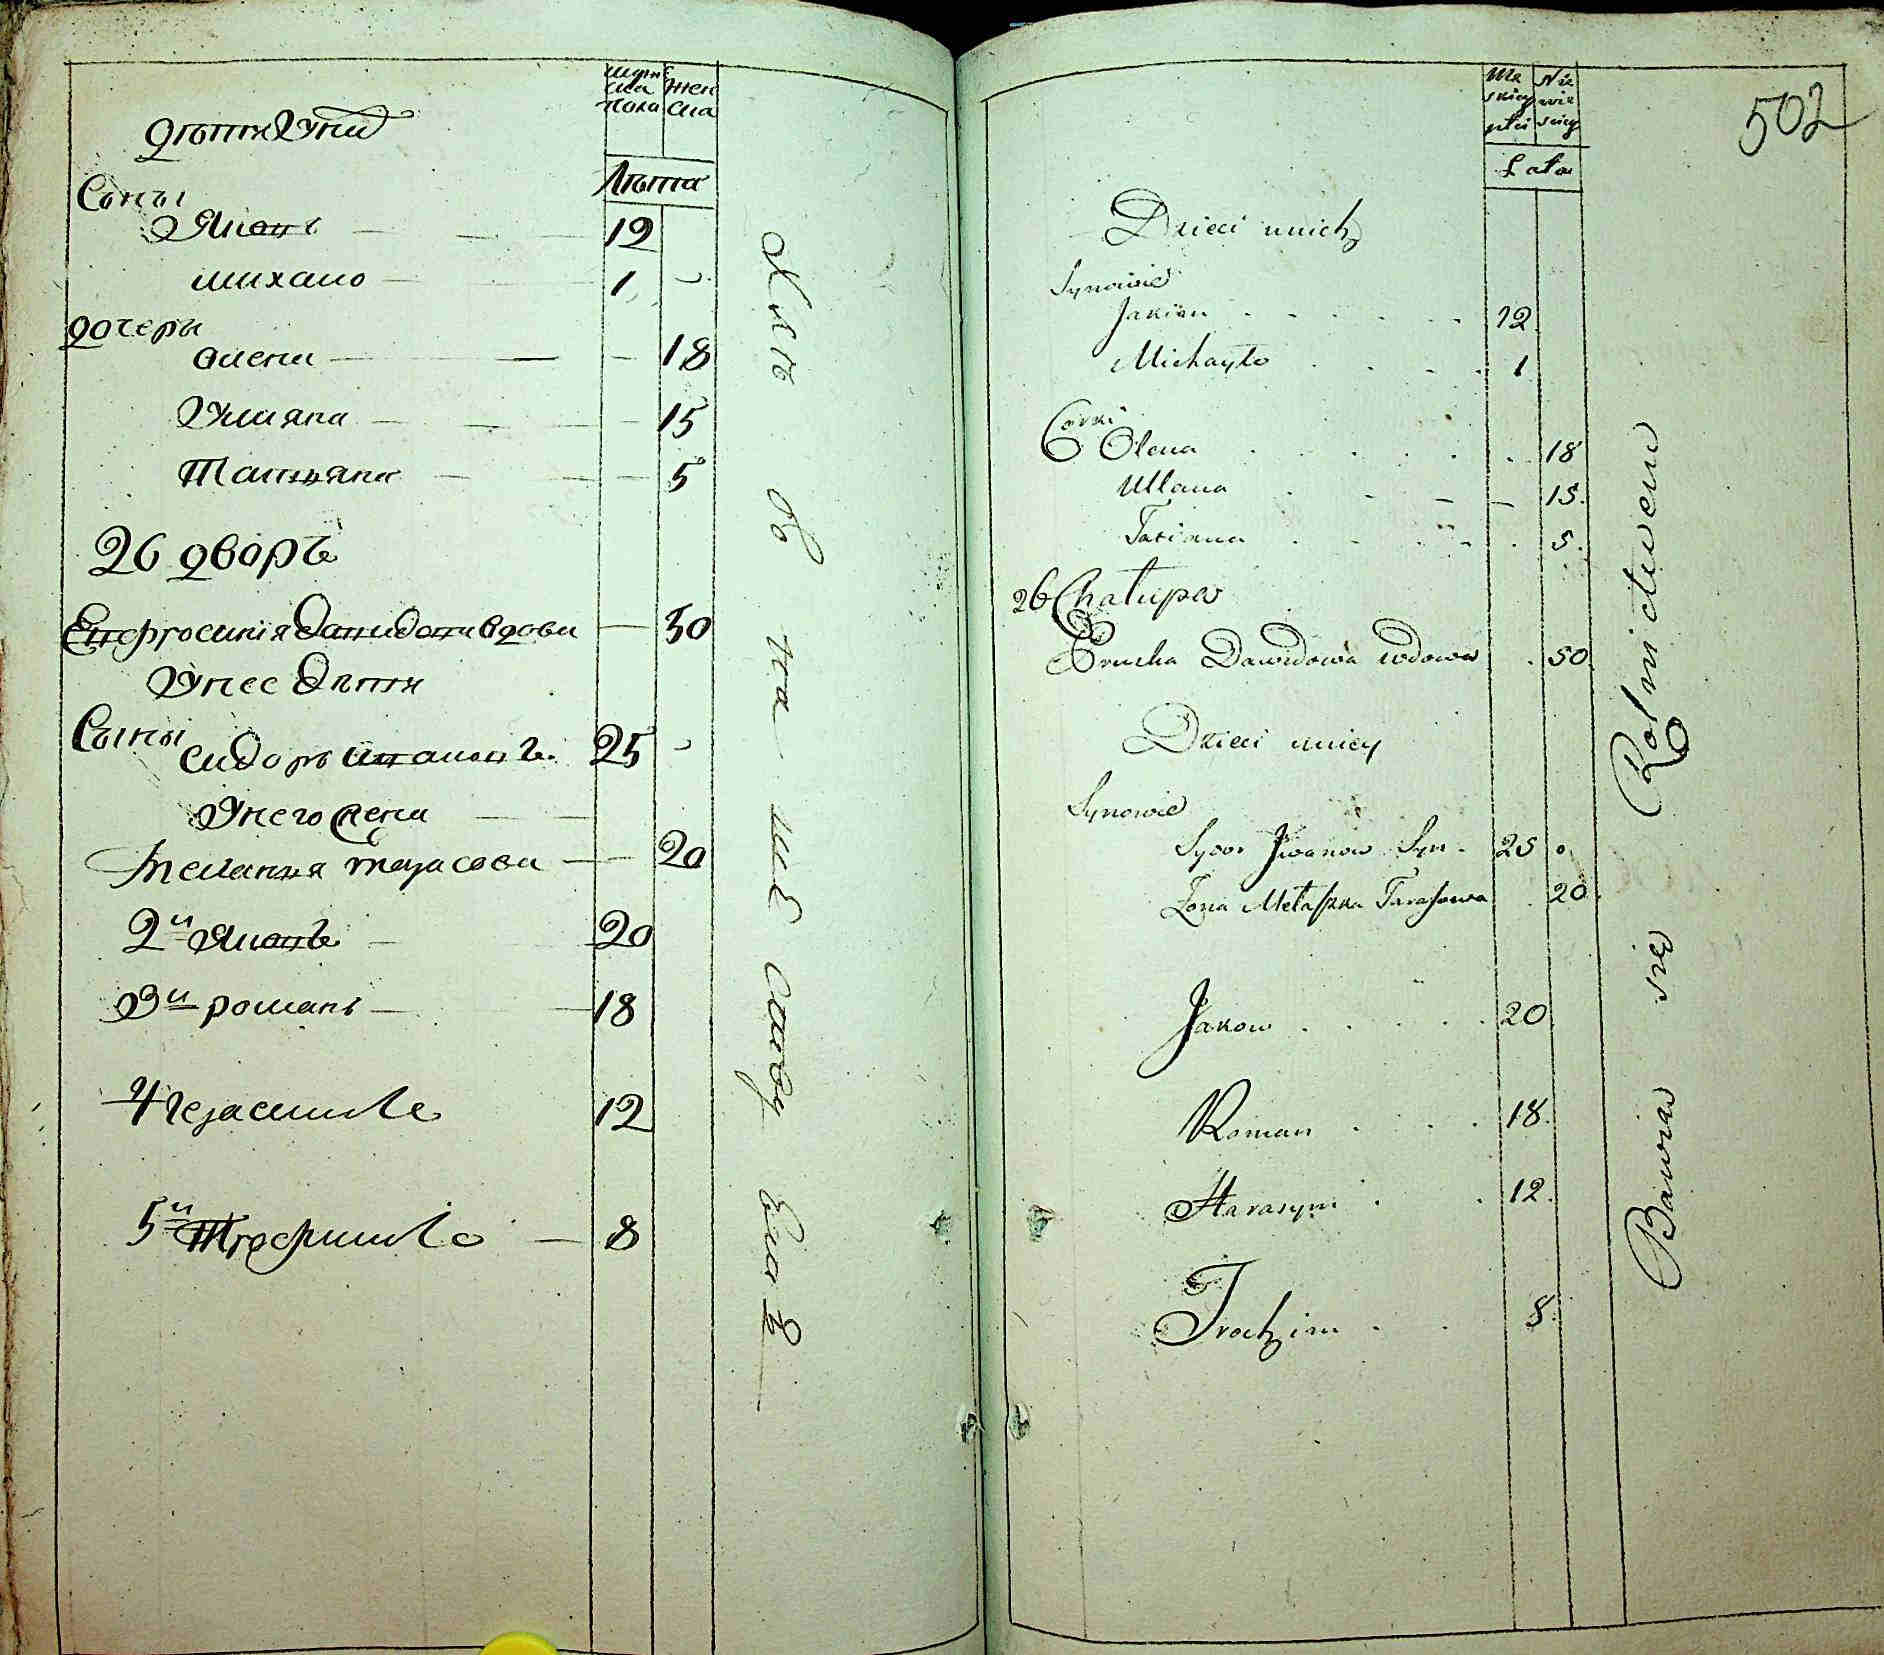 мужс
ка
пола
жен
ска
дѣти у них
Лѣта
Сыны
Яковъ 12
михаило 1
дочеры
олена 18
Уляна 15
Татьяна 5
26 дворъ
Ефросиния давидова вдова 50
У нее дѣти
Сыны
сидоръ ивановъ 25
У него жена
Мелания тарасова 20
2й Яковъ 20
3й романъ 18
4 герасимъ 12
5й Трофимъ 8
502
Mę
skiey
płci
Nie
wie
sciey
Lata
Dzieci unich
Synowie
Jakow 12
Michayło 1
Corki
Olena 18
Ullana 15
Tatiana 5
26 Chałupa
Dawidowa wdowa 50
Dzieci unicy
Synowie
Sydor Jwanow Syn 25
Żona Małaszka Tarasowa 20
Jakow 20
Roman 18
Harasym 12
Trochim 8
Bawia się Rolnictwem